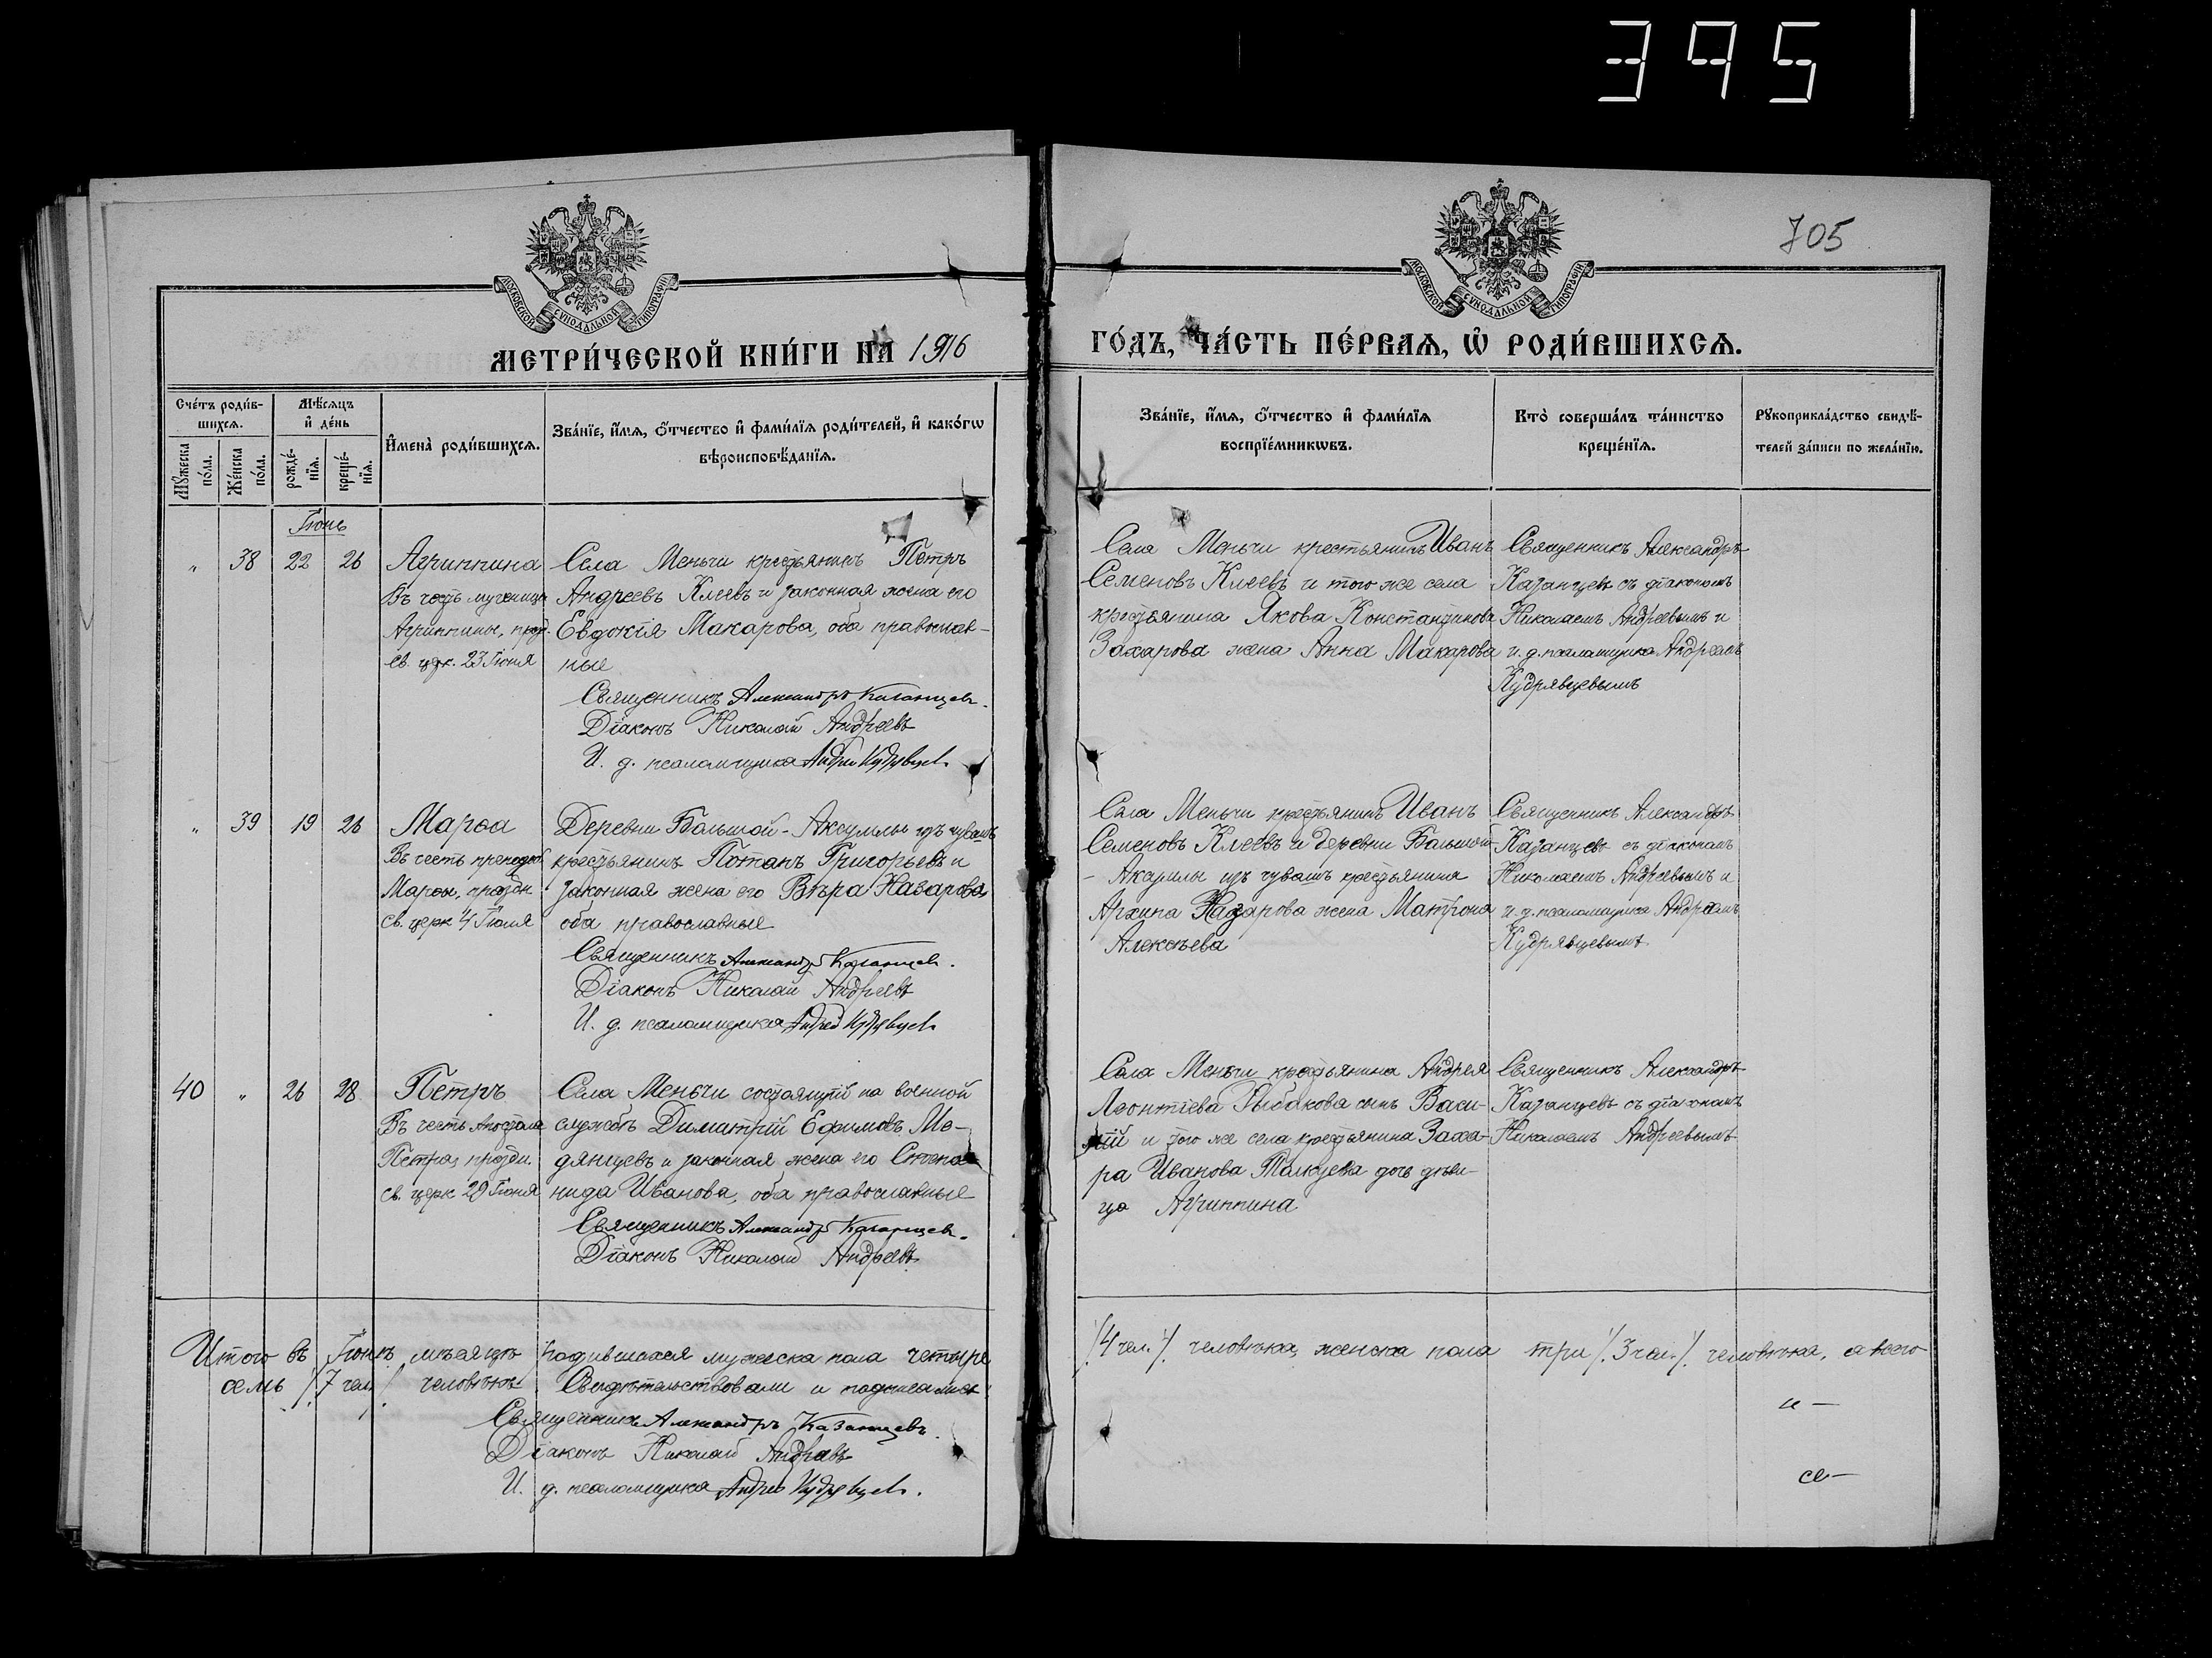 395
705
МОСКОВСКОЙ СѴНОДАЛЬНОЙ ТИПОГРАФІИ
МОСКОВСКОЙ СѴНОДАЛЬНОЙ ТИПОГРАФІИ
МЕТРИ́ЧЕСКОЙ КНИ́ГИ НА 1916
ГО́ДЪ, ЧА́СТЬ ПЕ́РВАѦ, Ѡ҆ РОДИ́ВШИХСѦ.
Сче́тъ роди́в-
шихсѧ.
Мꙋ́жеска
по́ла.
Же́нска
по́ла.
Мѣ́сѧцъ
и҆ де́нь
рожде́-
нїѧ.
креще́-
нїѧ.
И҆мена̀ роди́вшихсѧ.
Зва́нїе, и҆́мѧ, ѻ҆́тчество и҆ фами́лїѧ роди́телей, и҆ како́гѡ
вѣроисповѣ́данїѧ.
Зва́нїе, и҆́мѧ, ѻ҆́тчество и҆ фами́лїѧ
воспрїе́мникѡвъ.
Кто̀ соверша́лъ та́инство
креще́нїѧ.
Рꙋкоприкла́дство свидѣ́-
телей за́писи по жела́нїю.
Іюнь
„ 38 22 26
Агриппина
Въ честь мученицы
Агриппины, празд.
св. церк. 23 Іюня
Села Меньчи крестьянинъ Петръ
Андреевъ Клеевъ и законная жена его
Евдокія Макарова, оба православ-
ные
Священникъ Александръ Казанцевъ.
Діаконъ Николай Андреевъ
И. д. псаломщика Андрей Кудрявцевъ
Села Меньчи крестьянинъ Иванъ
Семеновъ Клеевъ и того же села
крестьянина Якова Константинова
Захарова жена Анна Макарова
Священникъ Александръ
Казанцевъ съ діакономъ
Николаемъ Андреевымъ и
и. д. псаломщика Андреемъ
Кудрявцевымъ
„ 39 19 26
Марѳа
Въ честь преподоб.
Марѳы, праздн.
св. церк 4 Іюля
Деревни Большой-Аксумлы изъ чувашъ
крестьянинъ Потапъ Григорьевъ и
законная жена его Вѣра Назарова,
оба православные
Священникъ Александръ Казанцевъ.
Діаконъ Николай Андреевъ
И. д. псаломщика Андрей Кудрявцевъ
Села Меньчи крестьянинъ Иванъ
Семеновъ Клеевъ и деревни Большой
- Аксумлы изъ чувашъ крестьянина
Архипа Назарова жена Матрона
Алексѣева
Священникъ Александръ
Казанцевъ съ діакономъ
Николаемъ Андреевымъ и
и. д. псаломщика Андреемъ
Кудрявцевымъ
40 „ 26 28
Петръ
Въ честь Апостола
Петра, праздн.
св. церк 29 Іюня
Села Меньчи состоящій на военной
службѣ Димитрій Ефимовъ Ме-
дянцевъ и законная жена его Степа
нида Иванова, оба православные
Священникъ Александръ Казанцевъ.
Діаконъ Николай Андреевъ
Села Меньчи крестьянина Андрея
Леонтіева Рыбакова сынъ Васи-
лій и того же села крестьянина Заха-
ра Иванова Толкуева дочь дѣви-
ца Агриппина
Священникъ Александръ
Казанцевъ съ діакономъ
Николаемъ Андреевымъ
Итого въ Іюнѣ мѣсяцѣ родившихся мужеска пола четыре
/4 чел./ человѣка, женска пола три /3 чел./ человѣка, а всего
семь /7 чел./ человѣкъ. Свидѣтельствовали и подписались:
Священникъ Александръ Казанцевъ.
Діаконъ Николай Андреевъ
И. д. псаломщика Андрей Кудрявцевъ.